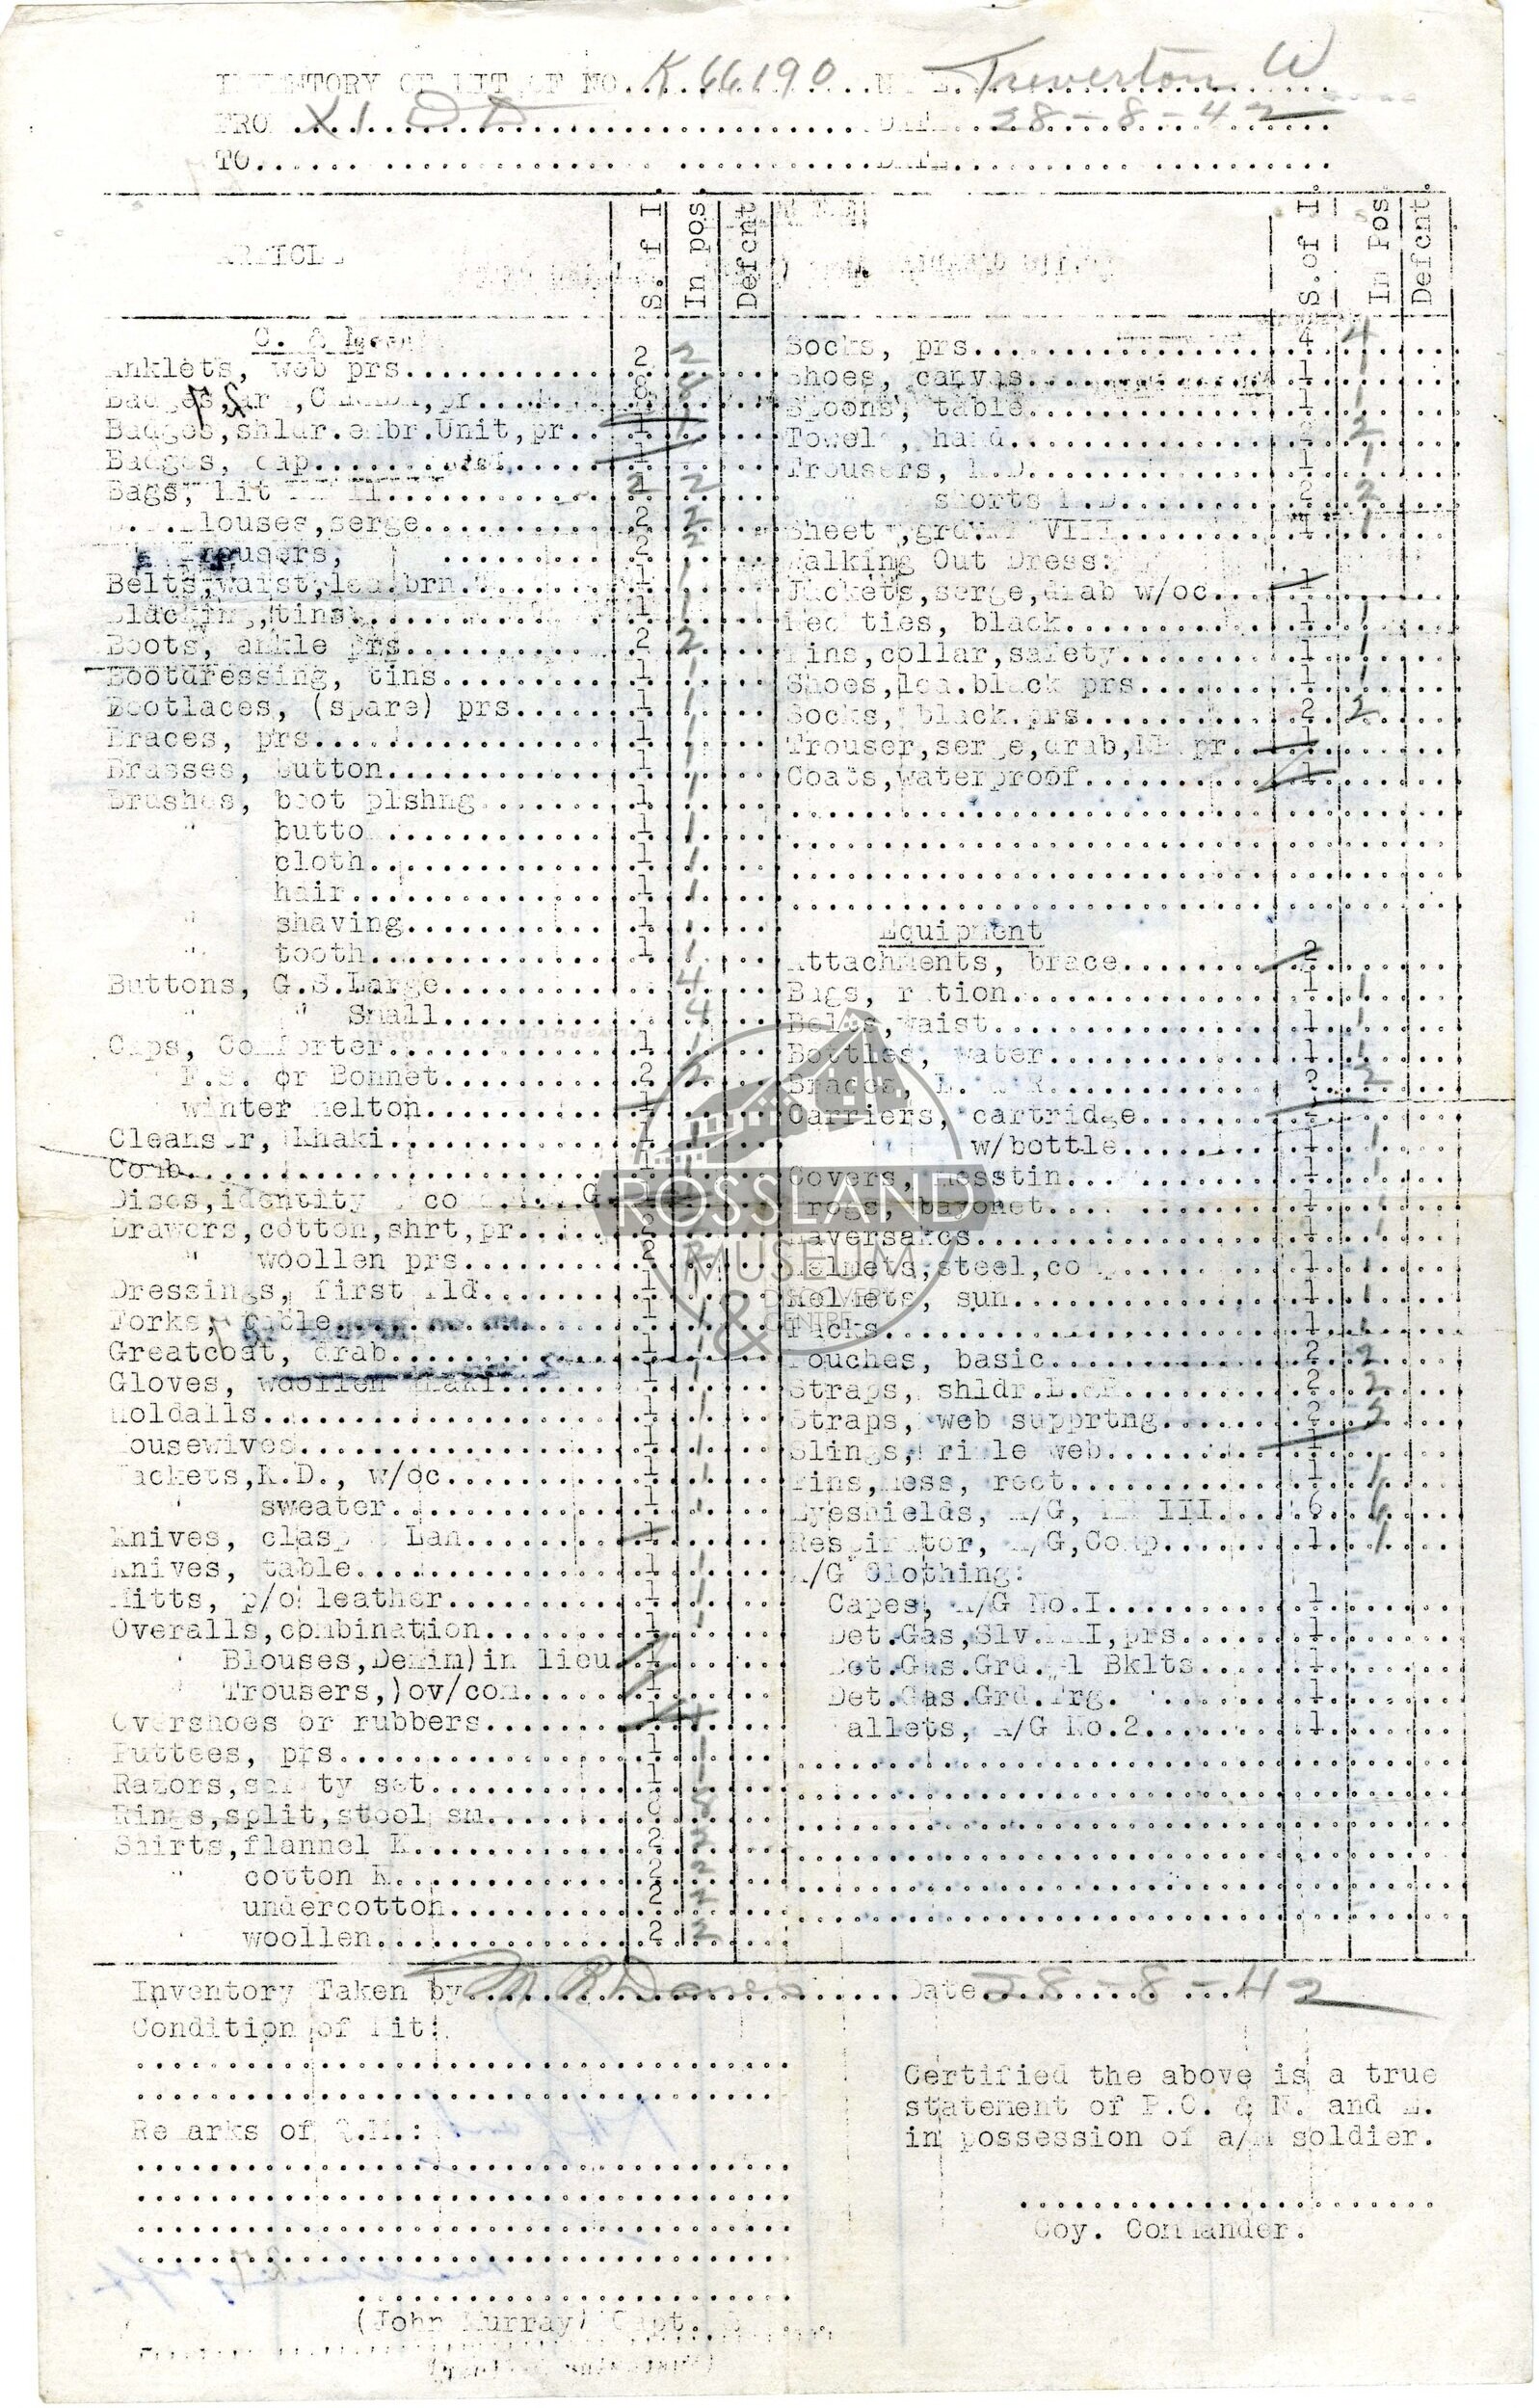 INVENTORY OF KIT OF NO. K 66190 NAME Treverton W
FROM XI DD DATE 28-8-42
TO DATE
ARTICLE S. of I. In pos. Defcnt
S. of I. In Pos. Defcnt.
Anklets, web prs 2 2
Badges, arm, CANADA, pr 8 8
Badges, shldr. embr. Unit, pr 1
Badges, cap 1
Bags, kit 2
Blouses, serge 2 2
Trousers, 2 2
Belts, waist, lea. brn. 1 1
Blacking, tins 1 1
Boots, ankle prs 2 2
Bootdressing, tins 1 1
Bootlaces, (spare) prs 1 1
Braces, prs 1 1
Brasses, button 1 1
Brushes, boot plshng 1 1
" button 1 1
cloth 1 1
hair 1 1
" shaving 1 1
" tooth 1 1
Buttons, G.S. Large 4
" " Small 4
Caps, Comforter 1 1
F.S. or Bonnet 2 2
winter melton 1
Cleanser, Khaki 1 1
Comb 1 1
Discs, identity
Drawers, cotton, shrt, pr 2
" woollen prs 2 2
Dressings, first fld 1 1
Forks, table 1 1
Greatcoat, drab 1 1
Gloves, woollen khaki 1 1
Holdalls 1 1
Housewives 1 1
Jackets, K.D., w/oc 1 1
sweater 1 1
Knives, clasp Lan 1
Knives, table 1 1
Mitts, p/o leather 1 1
Overalls, combination 1 1
" Blouses, Denim) in lieu 1
" Trousers, )ov/com 1
Overshoes or rubbers 1
Puttees, prs 1 1
Razors, safety set 1 1
Rings, split, steel sm 8
Shirts, flannel K 2 2
" cotton K 2 2
undercotton 2 2
woollen 2 2
Socks, prs 4 4
Shoes, canvas 1 1
Spoons, table 1 1
Towels, hand 2 2
Trousers, K.D. 1 1
" shorts K.D. 2 2
Sheet, grd. VIII 1 1
Walking Out Dress:
Jackets, serge, drab w/oc 1
Neckties, black 1 1
Pins, collar, safety 1 1
Shoes, lea. black prs 1 1
Socks, black prs 2 2
Trouser, serge, drab, pr 1
Coats, waterproof 1
Equipment
Attachments, brace 2
Bags, ration 1 1
Belts, waist 1 1
Bottles, water 1 1
Braces, L. & R. 2 2
Carriers, cartridge
w/bottle 1 1
Covers, messtin 1 1
Frogs, bayonet 1 1
Haversakcs 1 1
Helmets, steel, comp 1 1
Helmets, sun 1 1
Packs 1 1
Pouches, basic 2 2
Straps, shldr. L.&R. 2 2
Straps, web supprtng 2
Slings, rifle web 1
Tins, mess, rect 1 1
Eyeshields, A/G, MK III 6 6
Respirator, A/G, Comp 1 1
A/G Clothing:
Capes, A/G No.I 1
Det. Gas, Slv. MKI, prs 1
Det. Gas. Grd. Bklts 1
Det. Gas. Grd. Trg. 1
Wallets, A/G No.2 1
ROSSLAND
MUSEUM
& DISCOVERY
CENTRE
Inventory Taken by Date 28-8-42
Condition of Kit:
Certified the above is a true
statement of P.C. & N. and E.
in possession of a/m soldier.
Remarks of Q.M.:
Coy. Commander.
(John Murray) Capt.